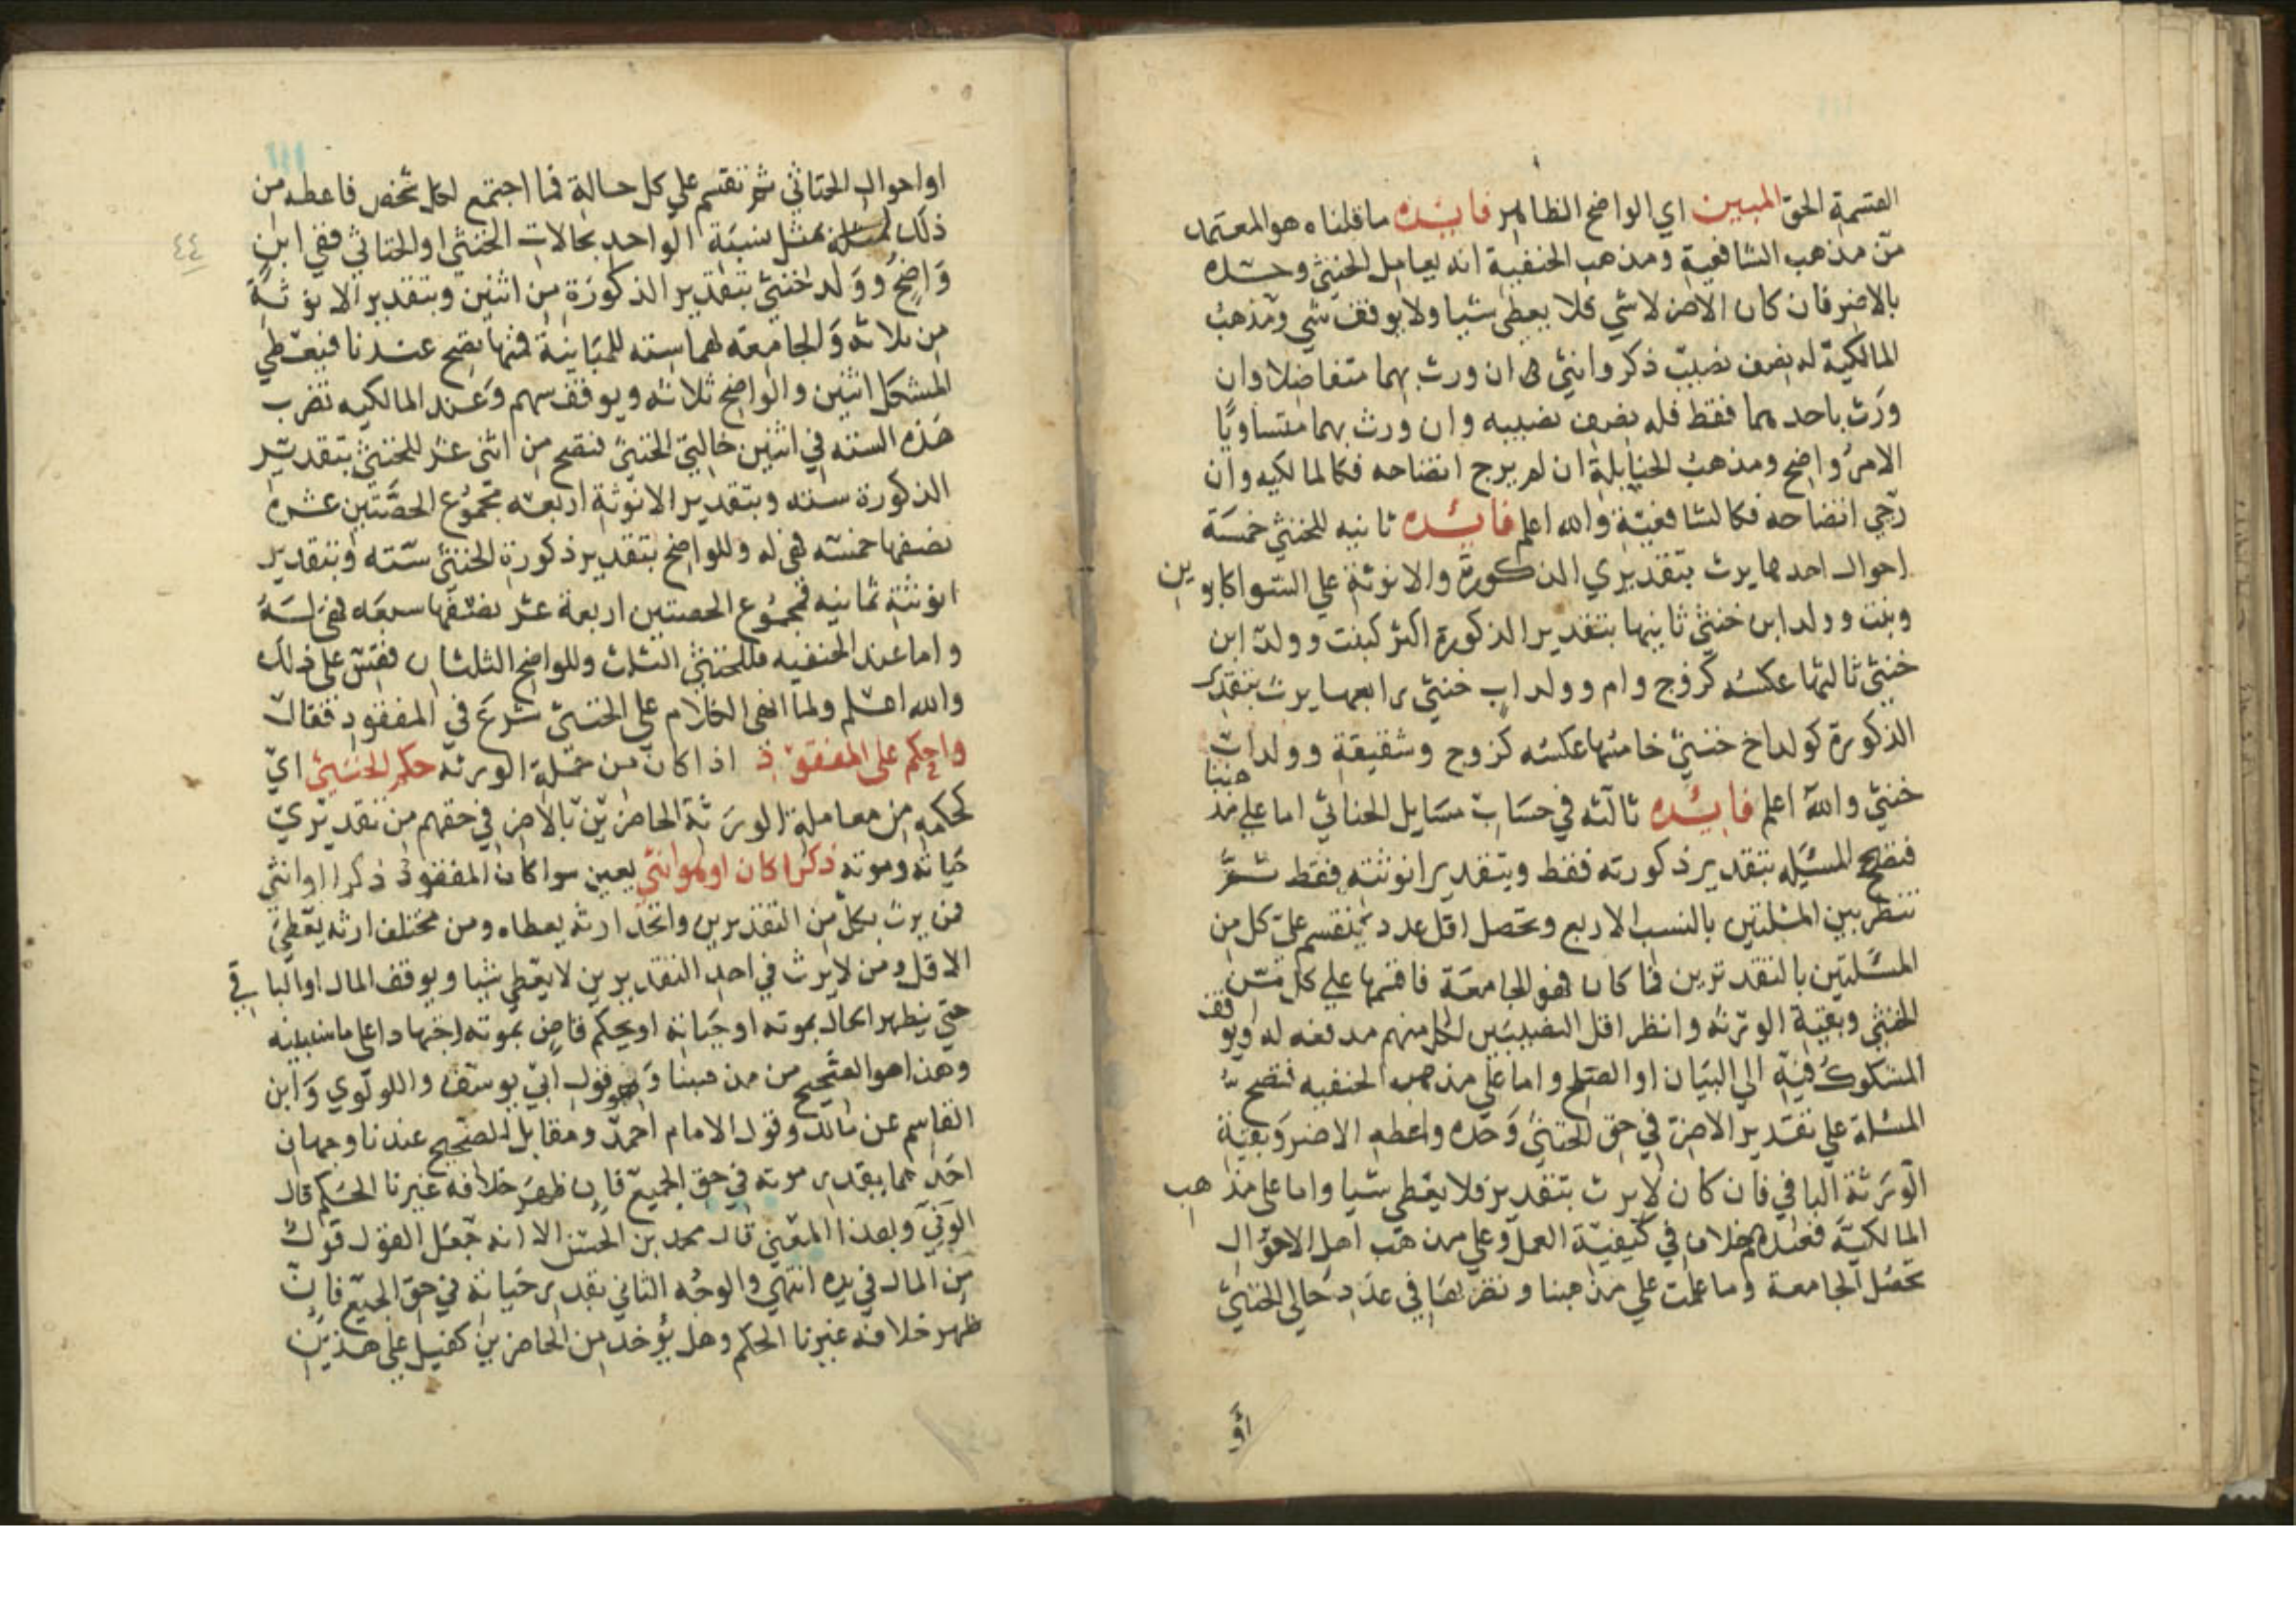 القسمة الحق المبين اي الواضح الظاهر فايده ما قلناه هو المعتمد
من مذهب الشافعية ومذهب الحنفية انه يعامل الخنثي وحده
بالاضر فان كان الاضر لا شي فلا يعطي شيا ولا يوقف شي ومذهب
المالكية له نصف نصيبي ذكر وانثي ان ورث بهما متفاضلا وان
ورث باحدهما فقط فله نصف نصيبه وان ورث بهما متساويا
الامر واضح ومذهب الحنابلة ان لم يرج اتضاحه فكالمالكيه وان
رجي اتضاحه فكالشافعية والله اعلم فائده ثانيه للخنثي خمسة
احوال احدها يرث بتقديري الذكورة والانوثة علي السوا كابوين
وبنت وولد ابن خنثي ثانيها بتقدير الذكورة اكثر كبنت وولد ابن
خنثي ثالثها عكسه كزوج وام وولد اب خنثي رابعها يرث بتقدير
الذكورة كولد اخ خنثي خامسها عكسه كزوج وشقيقة وولد اب
خنثي والله اعلم فايده ثالثه في حساب مسايل الخناثي اما علي مذهبنا
فتصح المسيله بتقدير ذكورته فقط وبتقدير انوثته فقط ثم
تنظر بين المسئلتين بالنسب الاربع وتحصل اقل عدد ينقسم علي كل من
المسئلتين بالتقديرين فما كان فهو الجامعة فاقسمها علي كل من
الخنثي وبقية الورثه وانظر اقل النصيبين لكل منهم فادفعه له ويوقف
المشكوك فيه الي البيان او الصلح واما علي مذهب الحنفيه فتصح
المسئلة علي تقدير الاضر في حق الخنثي وحده واعطه الاضر وبقية
الورثة الباقي فان كان لا يرث بتقدير فلا يعطي شيا واما علي مذهب
المالكية فعندهم خلاف في كيفية العمل وعلي مذهب اهل الاحوال
تحصل الجامعة وما علمت علي مذهبنا وتضربها في عدد حالي الخنثي
أو
٤٤
او احوال الخناثي ثم تقسم علي كل حالة فما اجتمع لكل شخص فاعطه من
ذلك بمثل نسبة الواحد بحالات الخنثي او الخناثي ففي ابن
واضح وولد خنثي بتقدير الذكورة من اثنين وبتقدير الانوثة
من ثلاثه والجامعة لهما سته للمباينة فمنها تصح عندنا فيعطي
المشكل اثنين والواضح ثلاثه ويوقف سهم وعند المالكيه تضرب
هذه السته في اثنين حالتي الخنثي فتصح من اثني عشر للخنثي بتقدير
الذكورة سته وبتقدير الانوثة اربعه مجموع الحصتين عشره
نصفها خمسه فهي له وللواضح بتقدير ذكورة الخنثي سته وبتقدير
انوثته ثمانيه فمجموع الحصتين اربعة عشر نصفها سبعه فهي له
واما عند الحنفيه فللخنثي الثلث وللواضح الثلثان فقس علي ذلك
والله اعلم ولما انهي الكلام علي الخنثي شرع في المفقود فقال
واحكم علي المفقود اذا كان من جملة الورثه حكم الخنثي اي
كحكمه من معاملة الورثة الحاضرين بالاضر في حقهم من تقديري
حياته وموته ذكرا كان او هو انثي يعين سوا كان المفقود ذكرا او انثي
فمن يرث بكل من التقديرين واتحد ارثه يعطاه ومن مختلف ارثه يعطي
الاقل ومن لا يرث في احد التقديرين لا يعطي شيا ويوقف المال او الباقي
حتي يظهر الحال بموته او حياته او يحكم قاض بموته اجتهادا علي ما سنبينه
وهذا هو الصحيح من مذهبنا وهو قول ابي يوسف واللولوي وابن
القاسم عن مالك وقول الامام احمد ومقابل الصحيح عندنا وجهان
احدهما يقدر موته في حق الجميع فان ظهر خلافه غيرنا الحكم قال
الوني وبهذا المعني قال محمد بن الحسن الا انه جعل القول قول
من المال في يده انتهي والوجه الثاني تقدير حياته في حق الجميع فان
ظهر خلافه غيرنا الحكم وهل يؤخذ من الحاضرين كفيل علي هذين